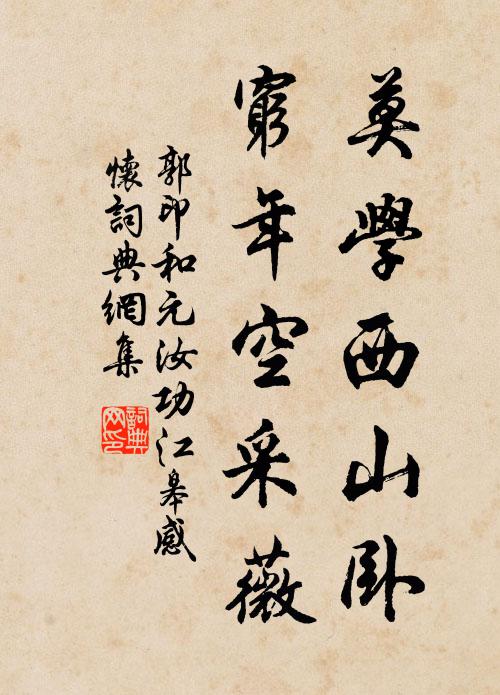 莫學西山卧
窮年空采薇
郭印和元汝功江皋感
懷詞典網集
詞典网印